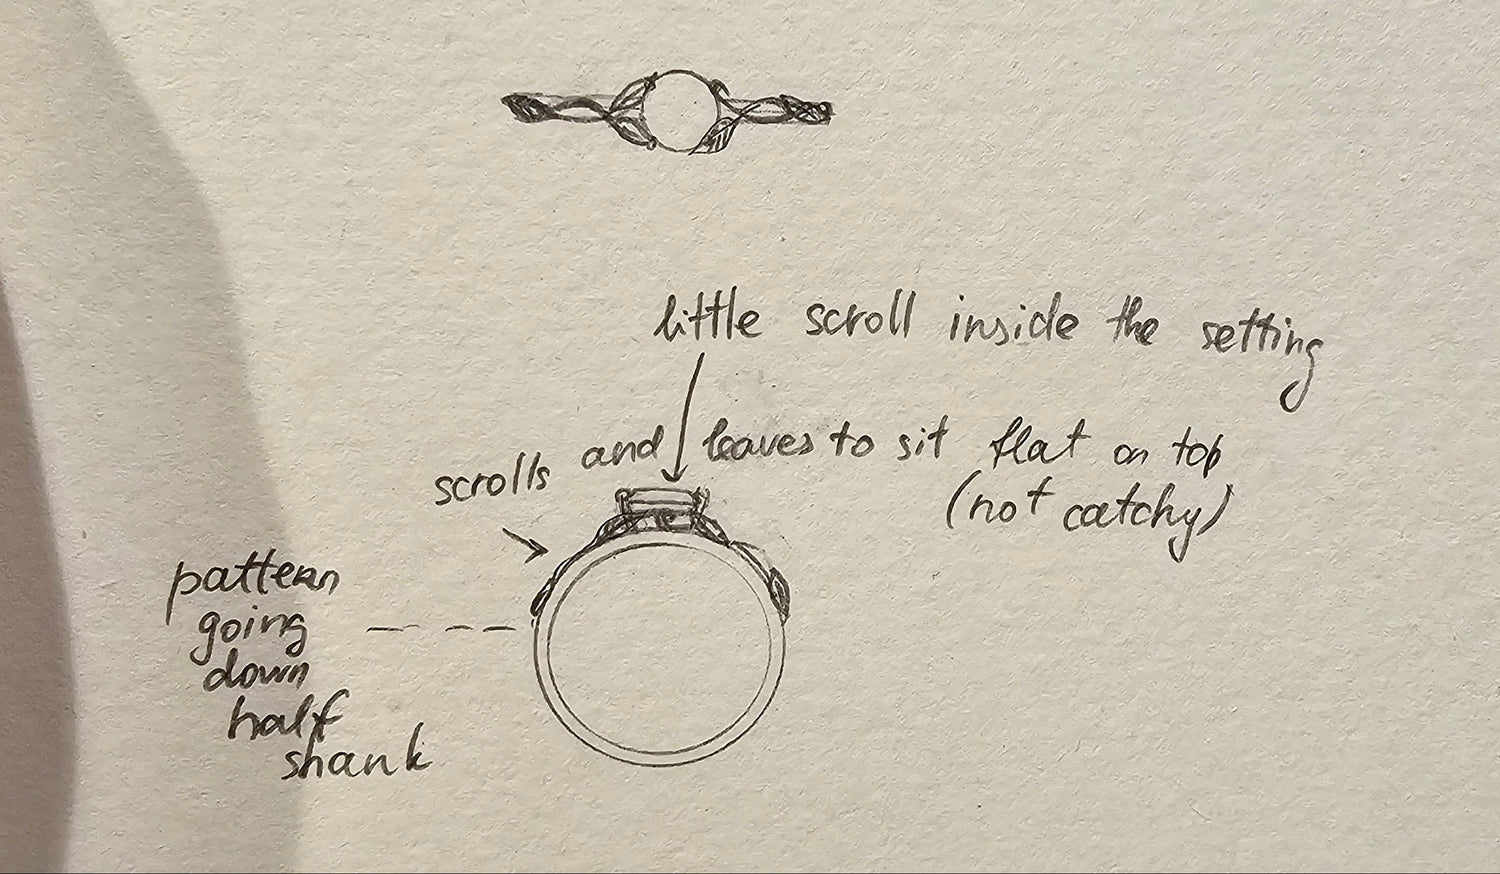 little scroll inside the setting
scrolls and leaves to sit flat on top
(not catchy)
pattern
going
down
half
shank